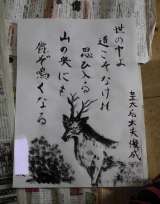 皇太后大夫俊成
世の中よ
道こそなけれ
思ひ入る
山の奥にも
鹿ぞ鳴くなる